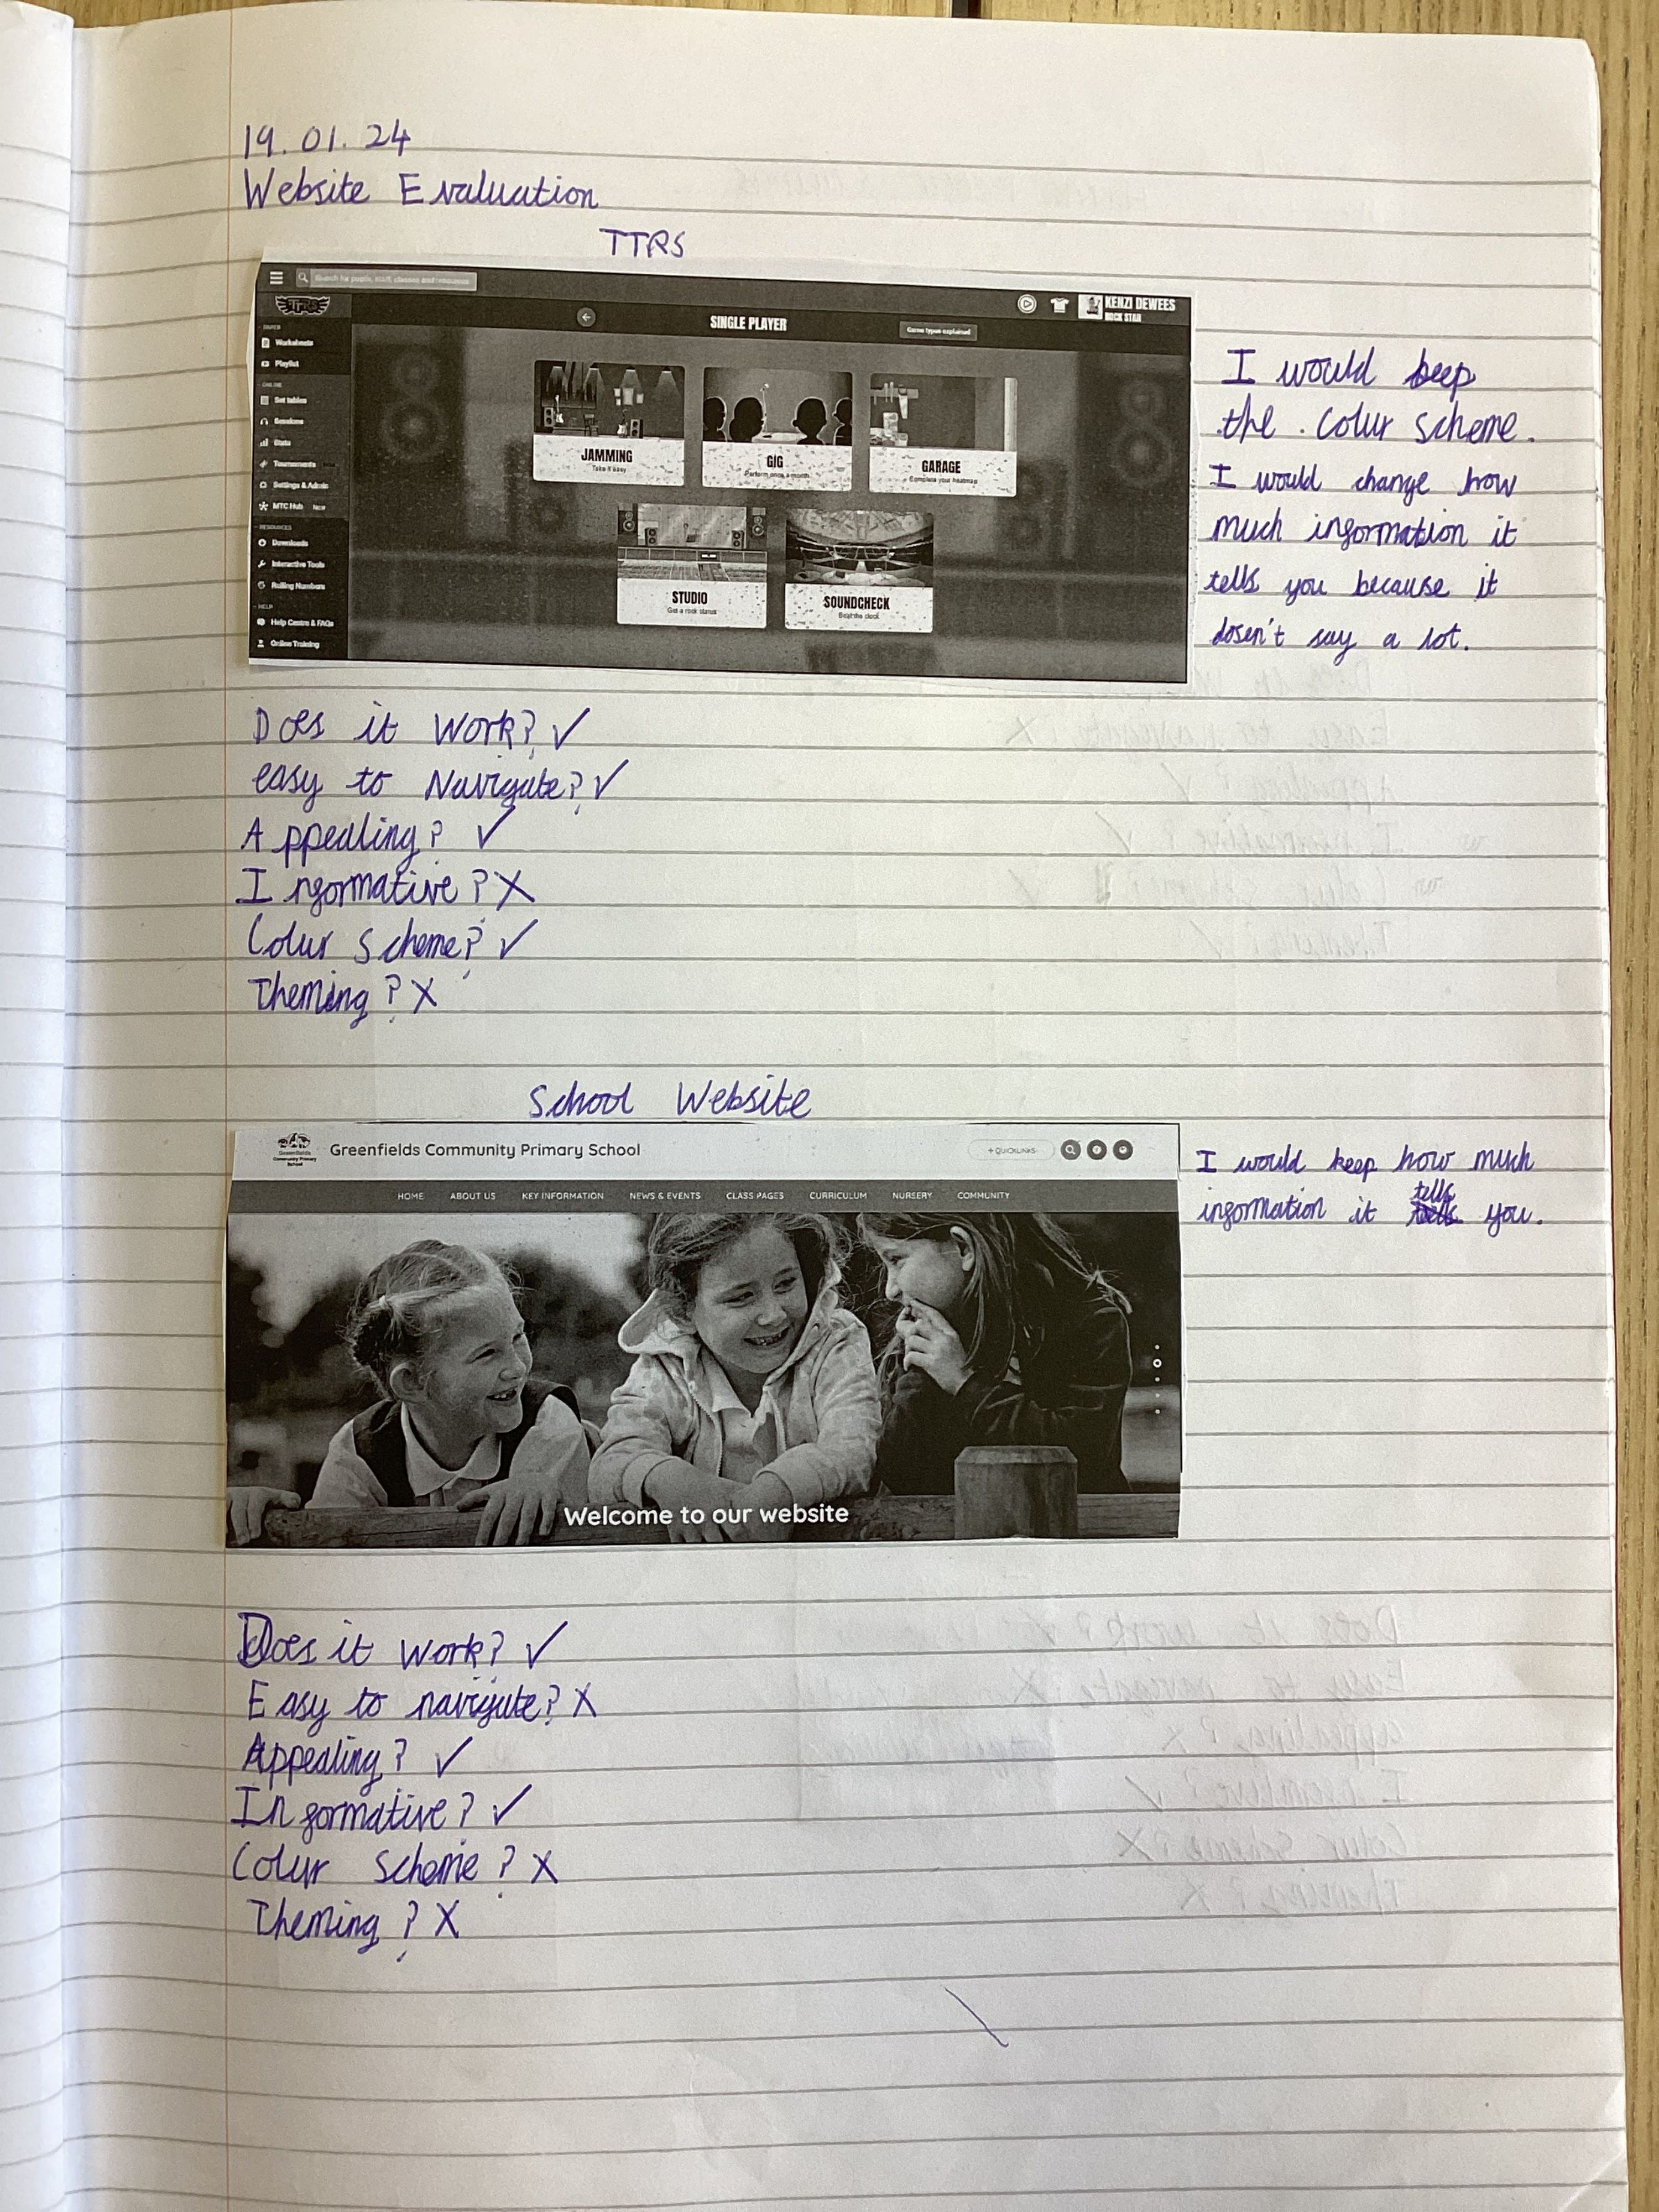 19.01.24
Website Evaluation
TTRS
Search for pupils, staff, classes and resources
TTRS
KENZI DEWEES
ROCK STAR
SINGLE PLAYER
Game types explained
Worksheets
Playlist
ONLINE
Set tables
Sessions
Stats
Tournaments
Settings & Admin
MTC Hub New
RESOURCES
Downloads
Interactive Tools
Rolling Numbers
HELP
Help Centre & FAQs
Online Training
JAMMING
Take it easy
GIG
Perform once a month
GARAGE
Complete your heatmap
STUDIO
Get a rock status
SOUNDCHECK
Beat the clock
I would keep
the . Colur Scheme.
I would change how
much information it
tells you because it
dosen't say a lot.
Does it Work? ✓
easy to Navigate? ✓
Appealing? ✓
Informative? X
Colur Scheme? ✓
Theming? X
School Website
Greenfields
Community Primary
School
Greenfields Community Primary School
+ QUICKLINKS
HOME ABOUT US KEY INFORMATION NEWS & EVENTS CLASS PAGES CURRICULUM NURSERY COMMUNITY
Welcome to our website
I would keep how much
information it tells you.
Does it Work? ✓
Easy to navigate? X
Appealing? ✓
Informative? ✓
Colur Scheme? X
Theming? X